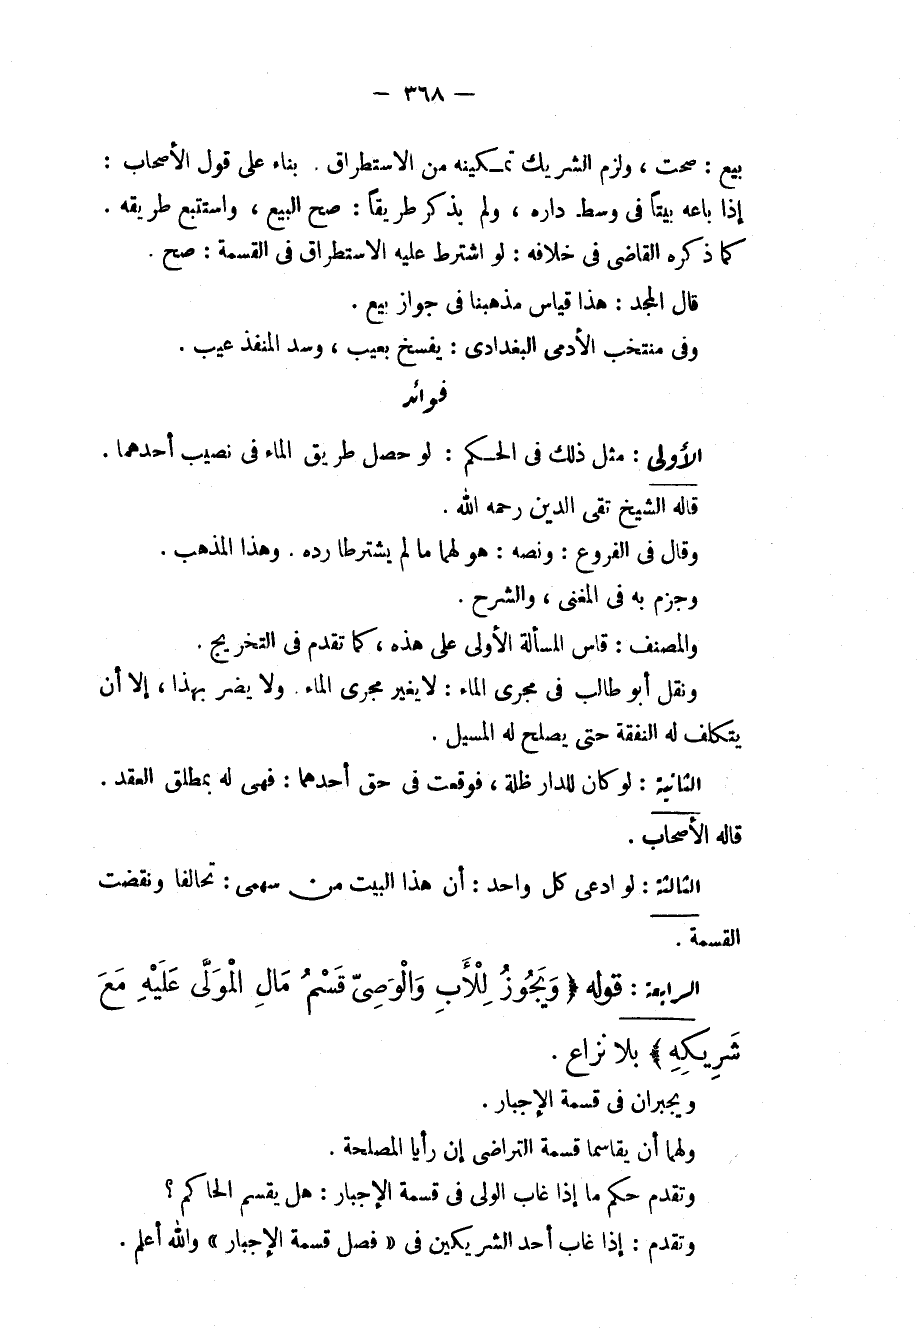 — ٣٦٨ —
بيع : صحت ، ولزم الشريك تمكينه من الاستطراق . بناء على قول الأصحاب :
إذا باعه بيتاً فى وسط داره ، ولم يذكر طريقاً : صح البيع ، واستتبع طريقه .
كما ذكره القاضى فى خلافه : لو اشترط عليه الاستطراق فى القسمة : صح .
قال المجد : هذا قياس مذهبنا فى جواز بيع .
وفى منتخب الأدمى البغدادى : يفسخ بعيب ، وسد المنفذ عيب .
فوائد
الأولى : مثل ذلك فى الحكم : لو حصل طريق الماء فى نصيب أحدهما .
قاله الشيخ تقى الدين رحمه الله .
وقال فى الفروع : ونصه : هو لهما ما لم يشترطا رده . وهذا المذهب .
وجزم به فى المغنى ، والشرح .
والمصنف : قاس المسألة الأولى على هذه ، كما تقدم فى التخريج .
ونقل أبو طالب فى مجرى الماء : لا يغير مجرى الماء . ولا يضر بهذا ، إلا أن
يتكلف له النفقة حتى يصلح له المسيل .
الثانية : لو كان للدار ظلة ، فوقعت فى حق أحدهما : فهى له بمطلق العقد .
قاله الأصحاب .
الثالثة : لو ادعى كل واحد : أن هذا البيت من سهمى : تحالفا ونقضت
القسمة .
الرابعة : قوله ﴿ وَيَجُوزُ لِلْأَبِ وَالْوَصِىّ قَسْمُ مَالِ الْمُوَلَّى عَلَيْهِ مَعَ
شَرِيكِهِ ﴾ بلا نزاع .
ويجبران فى قسمة الإجبار .
ولهما أن يقاسما قسمة التراضى إن رأيا المصلحة .
وتقدم حكم ما إذا غاب الولى فى قسمة الإجبار : هل يقسم الحاكم ؟
وتقدم : إذا غاب أحد الشريكين فى « فصل قسمة الإجبار » والله أعلم .